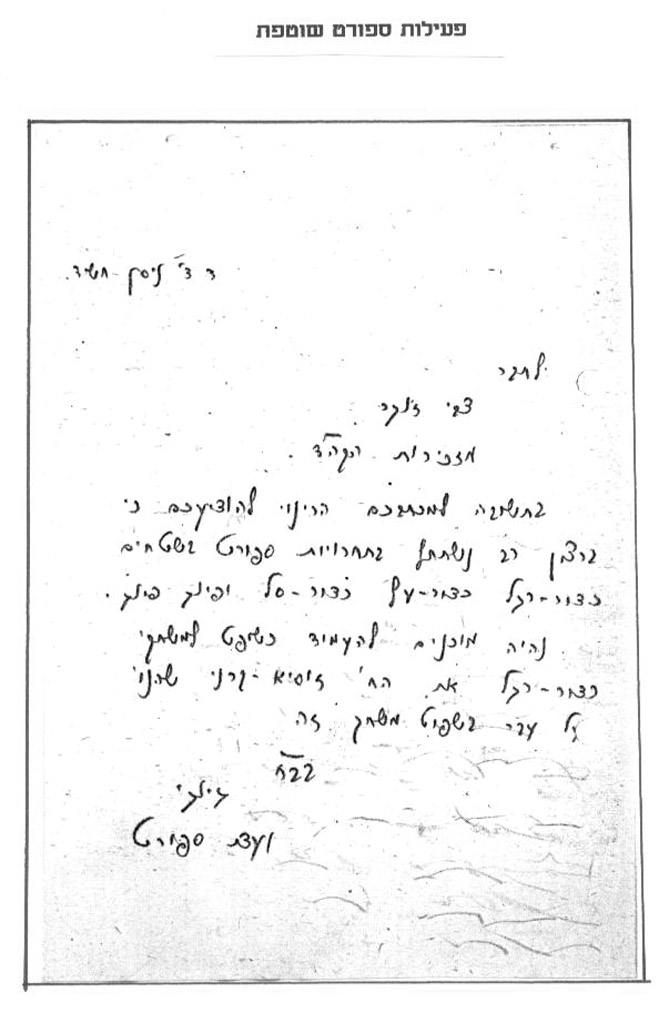 פעילות ספורט שוטפת
ניסן
לחבר
צבי
מזכירות הקה"ד
בתשובה למכתבכם הריני להודיעכם כי
ברצון רב נשתתף בתחרויות ספורט בשטחים
כדור-רגל כדור-עף כדור-סל ופינג פונג.
נהיה מוכנים להעמיד כשופט למשחקי
כדור-רגל את הח' זוסיא שהנו
בשפוט משחק זה
בב"ח
ועדת ספורט